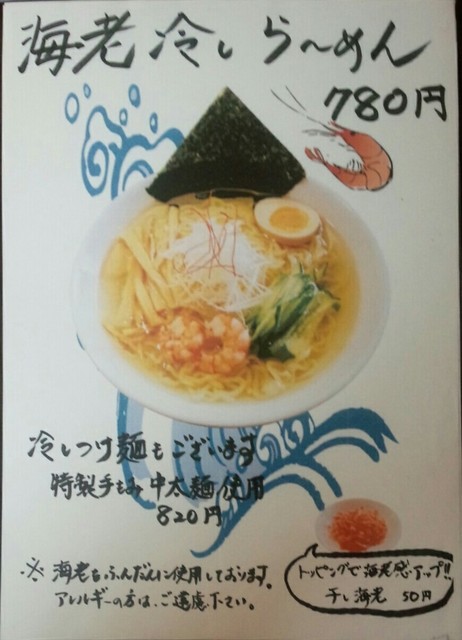 海老冷しら〜めん
780円
冷しつけ麺もございます
特製手もみ中太麺使用
820円
※海老をふんだんに使用しております。
アレルギーの方は、ご遠慮下さい。
トッピングで海老感アップ!!
干し海老 50円